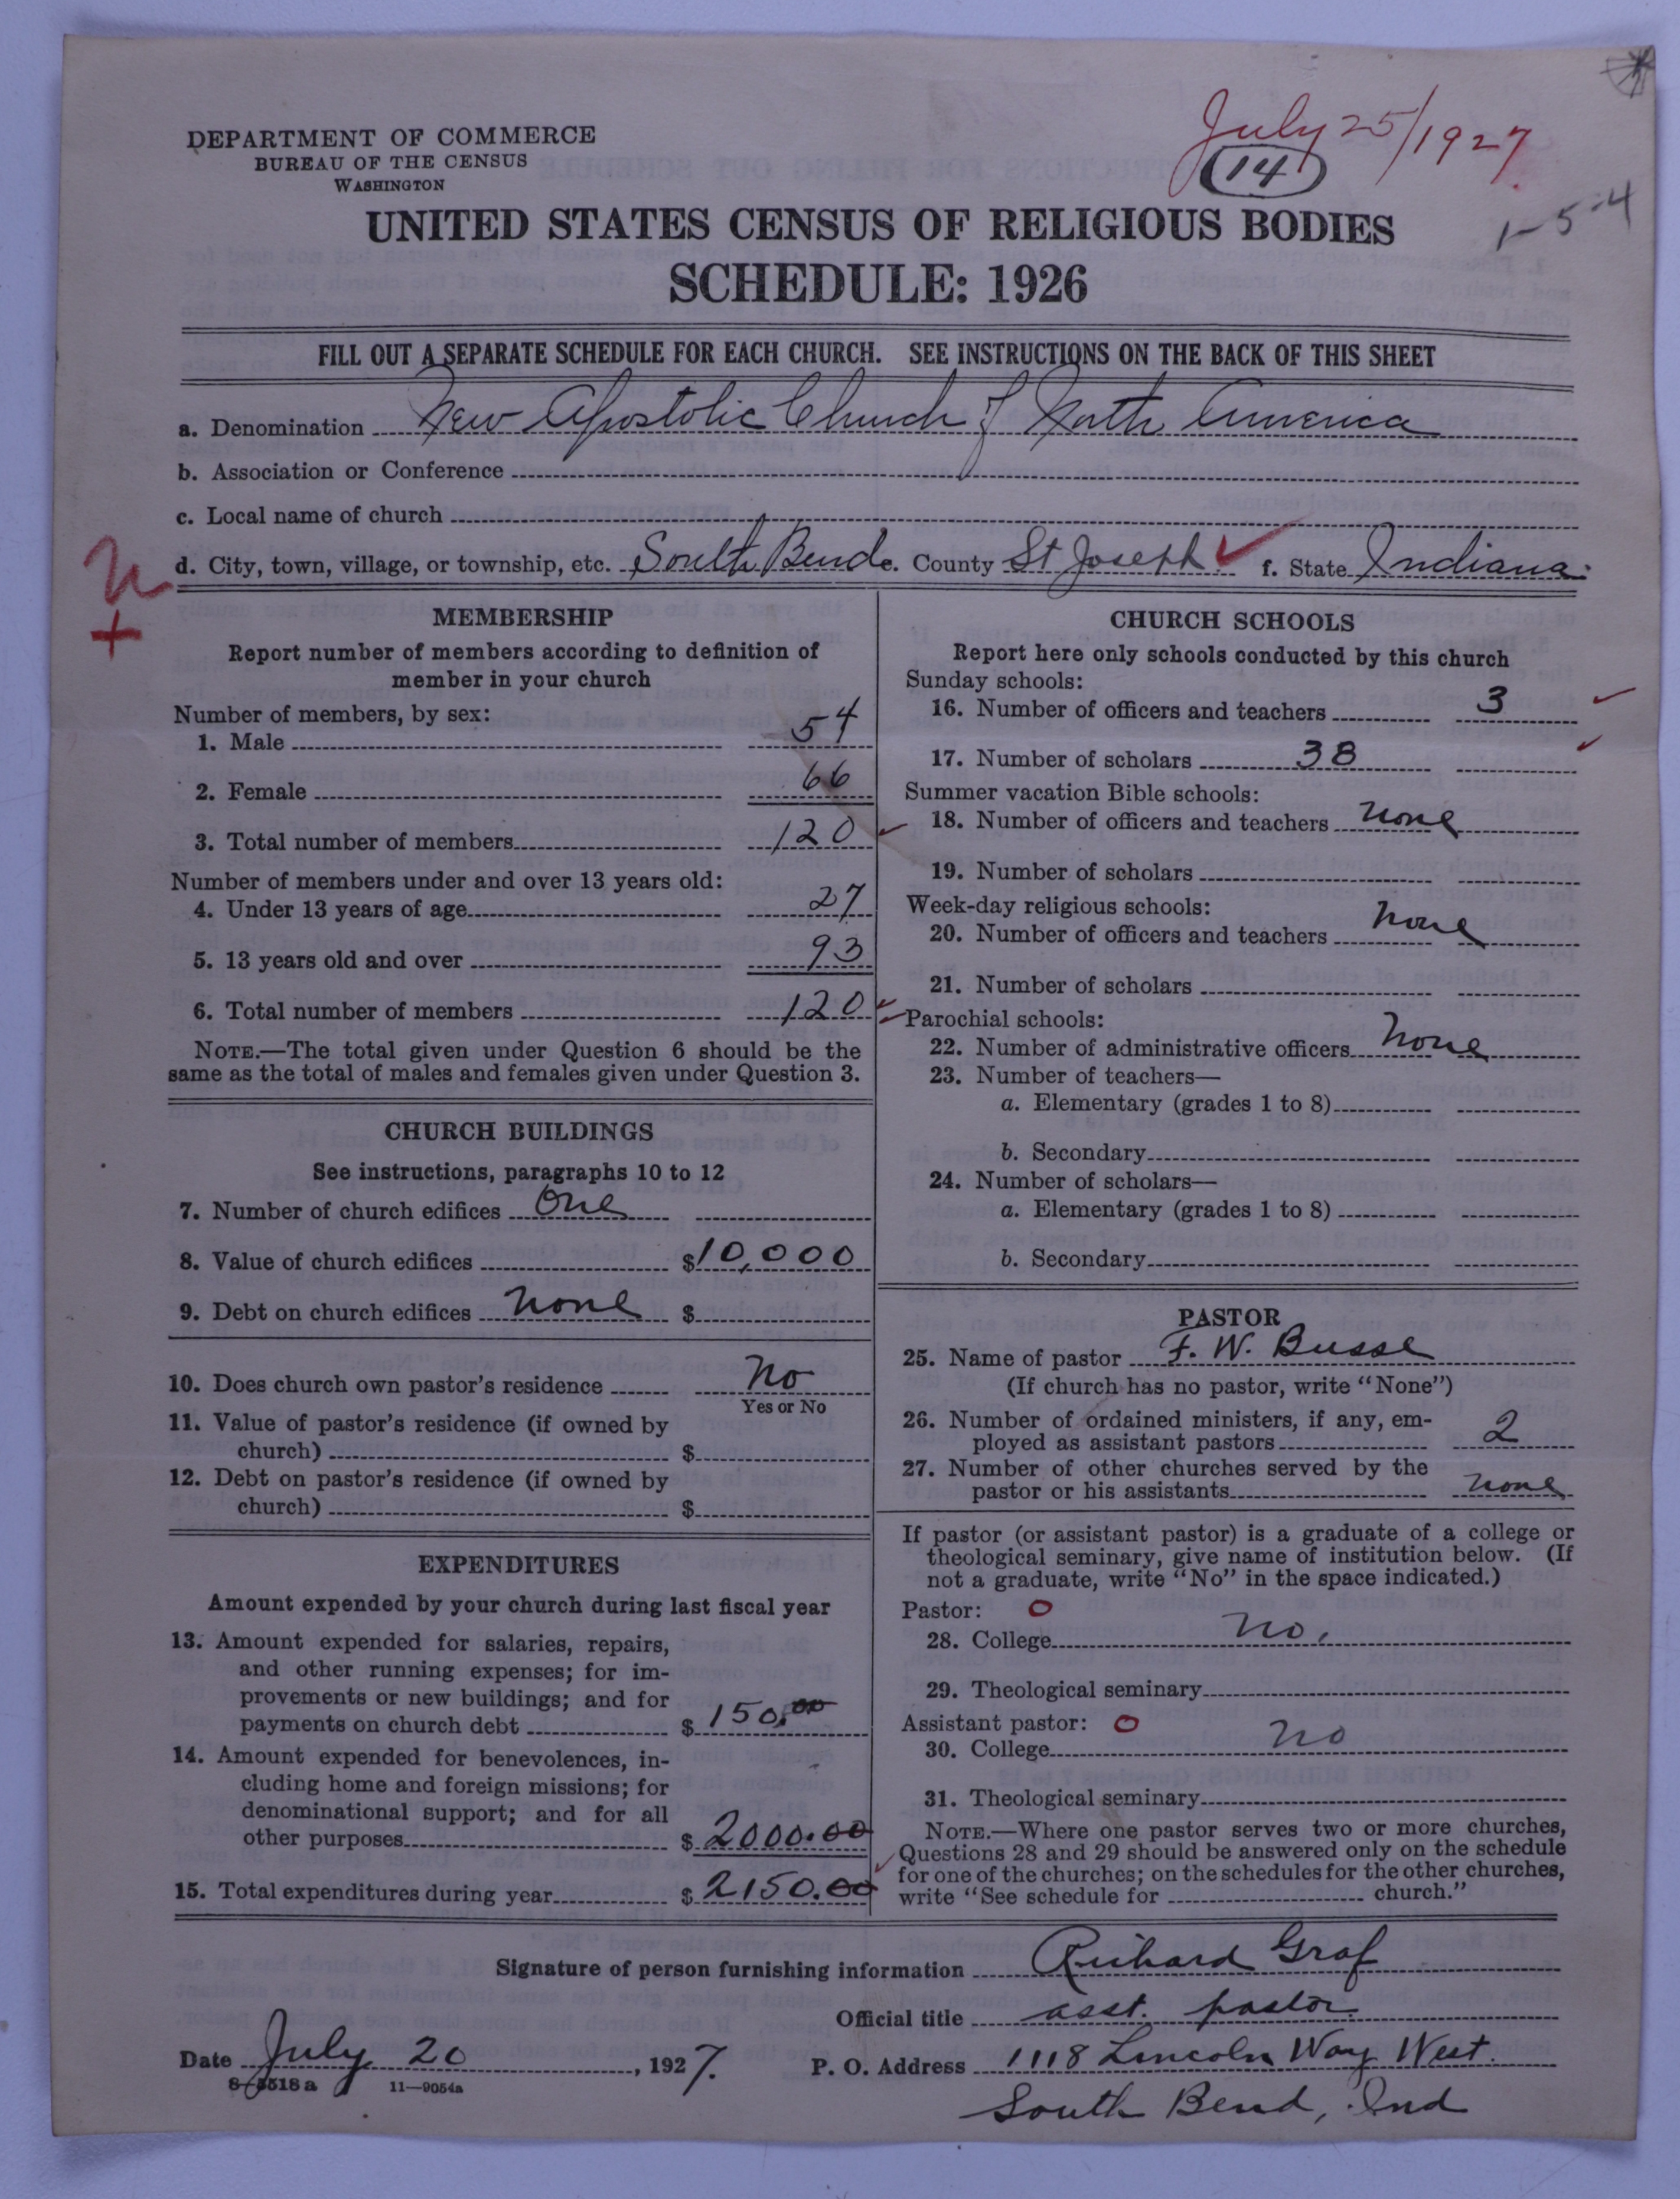 July 25/1927
DEPARTMENT OF COMMERCE
BUREAU OF THE CENSUS
WASHINGTON
14
1-5-4
UNITED STATES CENSUS OF RELIGIOUS BODIES
SCHEDULE: 1926
FILL OUT A SEPARATE SCHEDULE FOR EACH CHURCH. SEE INSTRUCTIONS ON THE BACK OF THIS SHEET
a. Denomination New Apostolic Church of North America
b. Association or Conference
c. Local name of church
d. City, town, village, or township, etc. South Bend e. County St Joseph f. State Indiana
MEMBERSHIP
Report number of members according to definition of
member in your church
Number of members, by sex:
1. Male 54
2. Female 66
3. Total number of members 120
Number of members under and over 13 years old:
4. Under 13 years of age 27
5. 13 years old and over 93
6. Total number of members 120
NOTE.—The total given under Question 6 should be the
same as the total of males and females given under Question 3.
CHURCH BUILDINGS
See instructions, paragraphs 10 to 12
7. Number of church edifices One
8. Value of church edifices $10,000
9. Debt on church edifices none $
10. Does church own pastor's residence no
Yes or No
11. Value of pastor's residence (if owned by
church) $
12. Debt on pastor's residence (if owned by
church) $
EXPENDITURES
Amount expended by your church during last fiscal year
13. Amount expended for salaries, repairs,
and other running expenses; for im-
provements or new buildings; and for
payments on church debt $150.00
14. Amount expended for benevolences, in-
cluding home and foreign missions; for
denominational support; and for all
other purposes $2000.00
15. Total expenditures during year $2150.00
CHURCH SCHOOLS
Report here only schools conducted by this church
Sunday schools:
16. Number of officers and teachers 3
17. Number of scholars 38
Summer vacation Bible schools:
18. Number of officers and teachers none
19. Number of scholars
Week-day religious schools:
20. Number of officers and teachers none
21. Number of scholars
Parochial schools:
22. Number of administrative officers none
23. Number of teachers—
a. Elementary (grades 1 to 8)
b. Secondary
24. Number of scholars—
a. Elementary (grades 1 to 8)
b. Secondary
PASTOR
25. Name of pastor F. W. Busse
(If church has no pastor, write "None")
26. Number of ordained ministers, if any, em-
ployed as assistant pastors 2
27. Number of other churches served by the
pastor or his assistants none
If pastor (or assistant pastor) is a graduate of a college or
theological seminary, give name of institution below. (If
not a graduate, write "No" in the space indicated.)
Pastor: 0
28. College no.
29. Theological seminary
Assistant pastor: 0
30. College no
31. Theological seminary
NOTE.—Where one pastor serves two or more churches,
Questions 28 and 29 should be answered only on the schedule
for one of the churches; on the schedules for the other churches,
write "See schedule for church."
Signature of person furnishing information Richard Graf
Official title asst. pastor
Date July 20, 1927. P. O. Address 1118 Lincoln Way West.
8-5518a 11-9054a
South Bend, Ind